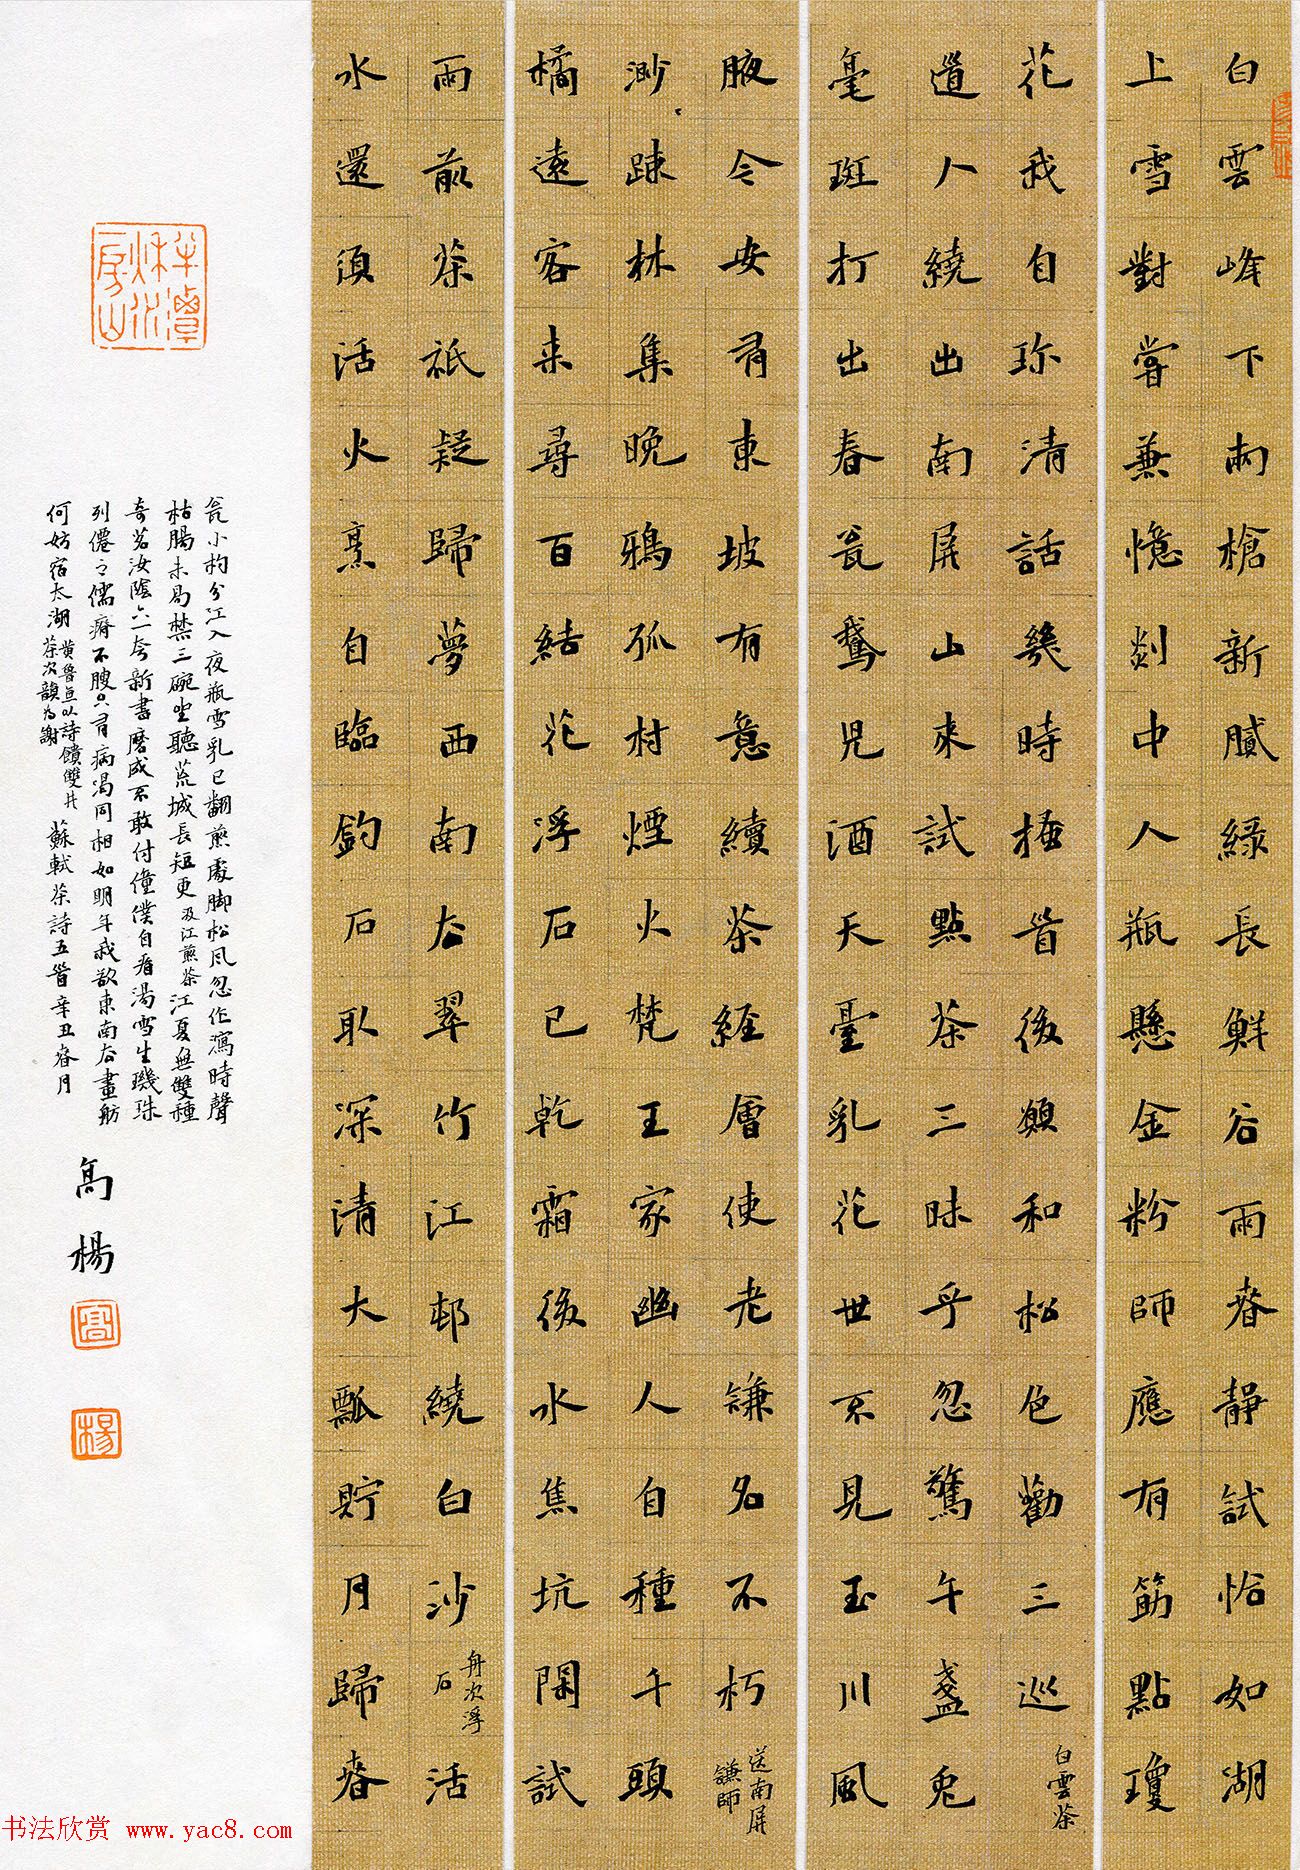 白雲峰下兩槍新膩綠長鮮谷雨春靜試恰如湖
上雪對嘗兼憶剡中人瓶懸金粉師應有筋點瓊
花我自珍清話幾時搔首後願和松色勸三巡白雲茶
道人繞出南屏山來試點茶三昧乎忽驚午盞兔
毫斑打出春瓮鵝兒酒天臺乳花世不見玉川風
腋令安有東坡有意續茶經會使老謙名不朽送南屏謙師
渺〻疎林集晚鴉孤村煙火梵王家幽人自種千頭
橘遠客来尋百結花浮石已乾霜後水焦坑閑試
雨前茶祇疑歸夢西南去翠竹江邨繞白沙舟次浮石活
水還須活火烹自臨釣石取深清大瓢貯月歸春
瓮小杓分江入夜瓶雪乳已翻煎處脚松風忽作瀉時聲
枯腸未易禁三碗坐聽荒城長短更汲江煎茶江夏無雙種
奇茗汝陰六一夸新書磨成不敢付僮僕自看湯雪生璣珠
列僊之儒瘠不腴只有病渴同相如明年我欲東南去畫舫
何妨宿太湖黄魯直以詩饋雙井茶次韻為謝蘇軾茶詩五首辛丑春月
高楊
高
楊
半潭秋水一房山
书法欣赏 www.yac8.com